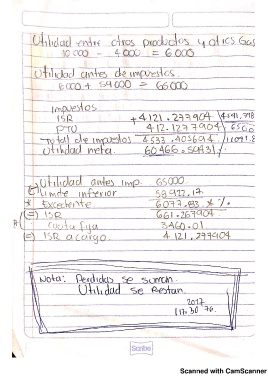 Utilidad entre otros productos y otros Gas
10 000 - 4000 = 6 000
Utilidad antes de impuestos.
6000 + 59000 = 65000
Impuestos
ISR + 4121.277904
PTU 412.1277904 / 65000
Total de impuestos 4533.405694
Utilidad neta. 60466.59431/.
Utilidad antes imp. 65000
(-) Limite inferior 58922.17
Excedente 6077.83 * %.
(=) ISR 661.267904
Cuota fija 3460.01
(=) ISR a cargo. 4 121.277904
Nota: Perdidas se suman.
Utilidad se restan.
2017
Scribe
Scanned with CamScanner